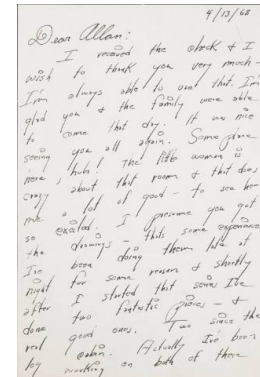 4/13/68
Dear Allan:
I received the check & I
wish to thank you very much -
I'm always able to use that. I'm
glad you & the family were able
to come that day. It was nice
seeing you all again. Some place
here, huh! The little woman is
crazy about that room & that does
me a lot of good - to see her
so excited. I presume you got
the drawings - thats some experience
I've been doing them late at
night for some reason & shortly
after I started that seems I've
done two fantastic pieces - &
real good ones. Two since the
by Actually I've been
working on both of these